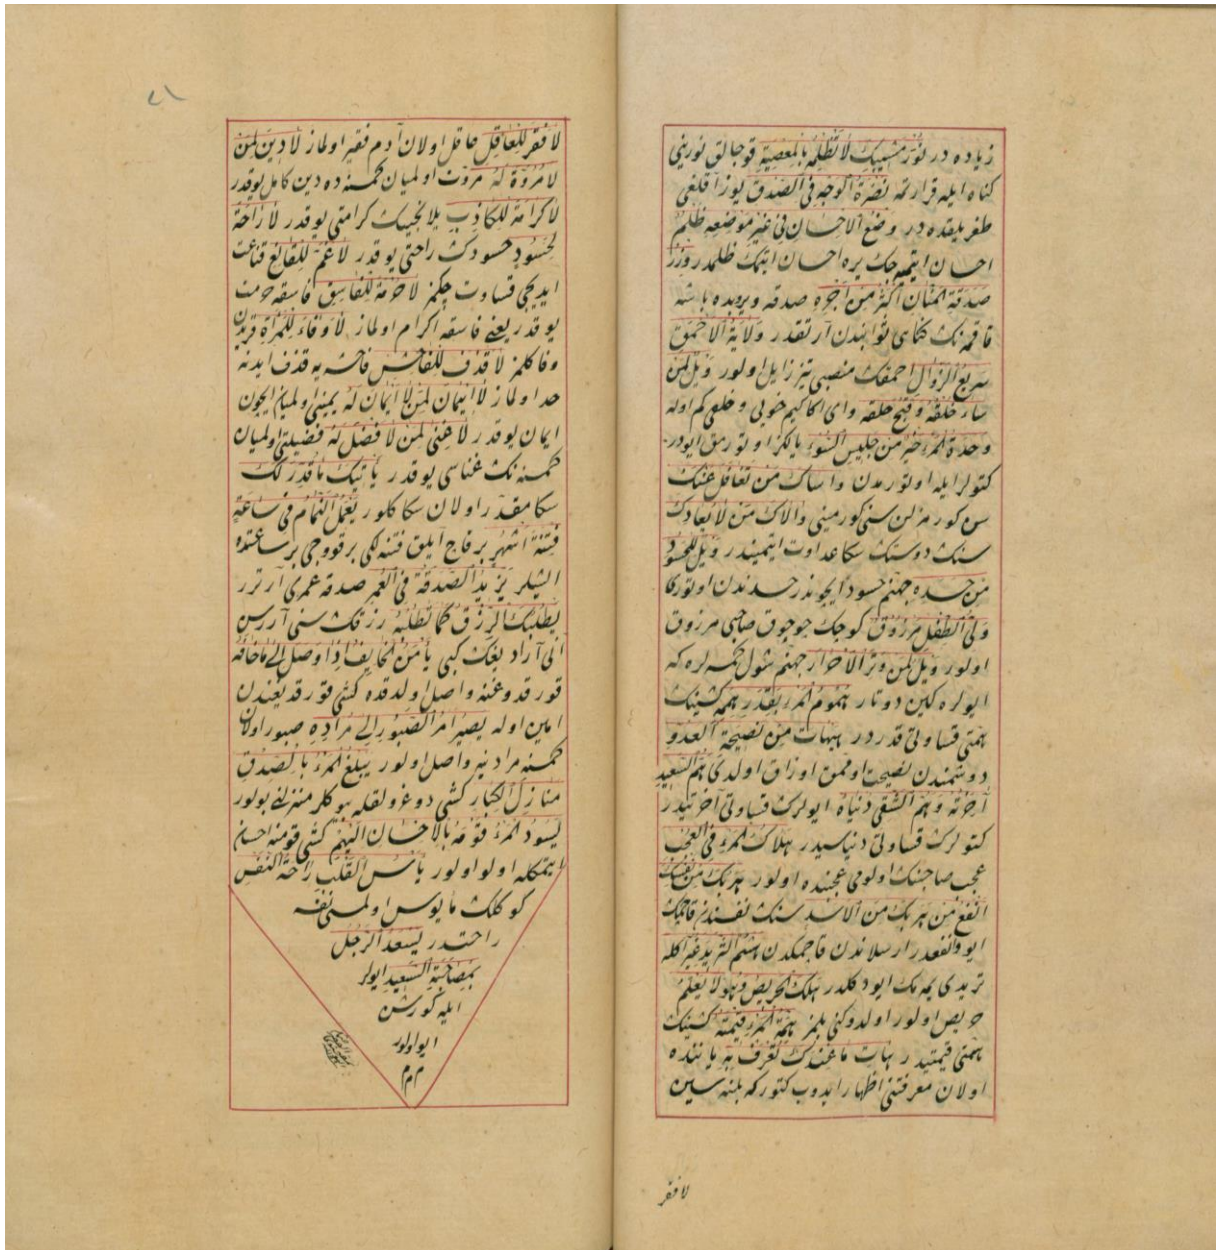 زیاده در نور مشیبک لا تظلمه بالمعصیة قوجالق نورینی
کناه ایله قرارتمه نضرة الوجه فی الصدق یوز آقلغی
طغریلیقده در وضع الاحسان فی غیر موضعه ظلم
احسان ایتمیه جک یره احسان ایتمک ظلمدر وزر
صدقة المنان اکثر من اجره صدقه ویروبده باشه
قاقمه نک کناهی ثوابندن آرتقدر ولایة الاحمق
سریع الزوال احمقک منصبی تیز زایل اولور ویل لمن
ساء خلقه وقبح خلقه وای اکا کیم خویی وخلقی کم اوله
وحدة المرء خیر من جلیس السوء یالکز اوتورمق ایودر
کتولر ایله اوتورمدن واساک من تغافل عنک
سن کورمزلن سنی کورمینی والاک من لا یعادک
سنک دوستک سکا عداوت ایتمیندر ویل للحسود
من حسده جهنم حسود ایچوندر حسدندن اوتورکا
ولی الطفل مرزوق کوجک جوجوق صاحبی مرزوق
اولور ویل لمن وتر الاحرار جهنم شول کمسه لره که
ایولره کین دوتار هموم المرء بقدر همه کشینک
همتی قساوتی قدردر هیهات من نصیحة العدو
دوشمندن نصیحت اومق اوزاق اولدی هم السعید
آخرته وهم الشقی دنیاه ایولرک قساوتی آخرتیدر
کتولرک قساوتی دنیاسیدر هلاک المرء فی العجب
عجب صاحبنک اولومی عجبنده اولور هربک من نفسک
انفع من هربک من الاسد سنک نفسندن قاچمک
ایو وانفعدر ارسلاندن قاچمکدن هشم الثرید غیر اکله
تریدی یمه نک ایود کلدر هلک الحریص وهو لا یعلم
حریص اولور اولدوکنی بلمز همة المرء قیمته کشینک
همتی قیمتیدر هات ما عندک تعرف به یاننده
اولان معرفتنی اظهار ایدوب کتور که بلنه سین
لا فقر
لا فقر للعاقل عاقل اولان آدم فقیر اولماز لا دین لمن
لا مروة له مروت اولمیان کمسنه ده دین کامل یوقدر
لا کرامة للکاذب یلانجینک کرامتی یوقدر لا راحة
لحسود حسودک راحتی یوقدر لا غم للقانع قناعت
ایدیجی قساوت چکمز لا حرمة للفاسق فاسقه حرمت
یوقدر یعنی فاسقه اکرام اولماز لا وفاء للمرأة قریدن
وفا کلمز لا قذف للفاحش فاحشه یه قذف ایدنه
حد اولماز لا ایمان لمن لا ایمان له یمینی اولمیان ایچون
ایمان یوقدر لا غنی لمن لا فضل له فضیلتی اولمیان
کمسنه نک غناسی یوقدر یأتیک ما قدر لک
سکا مقدر اولان سکا کلور یعمل النمام فی ساعة
فتنة اشهر برقاج آیلق فتنه لکی برقووجی بر ساعتده
ایشلر یزید الصدقة فی العمر صدقه عمری آرترر
یطلبک الرزق کما تطلبه رزقک سنی آررسن
انی آرادیغک کبی یأمن الخایف اذا وصل الی ما خافه
قورقدوغنه واصل اولدقده کشی قورقدیغندن
امین اوله یصیر امر الصبور الی مراده صبور اولان
کمسنه مرادینه واصل اولور یبلغ المرء بالصدق
منازل الکبار کشی دوغرولقله بیوکلر منزلنی بولور
یسود المرء قومه بالاحسان الیهم کشی قومنه احسان
ایتمکله اولو اولور یأس القلب راحة النفس
کوکلک مأیوس اولمسی نفسه
راحتدر یسعد الرجل
بمصاحبة السعید ایولر
ایله کورشن
ایو اولور
م م م